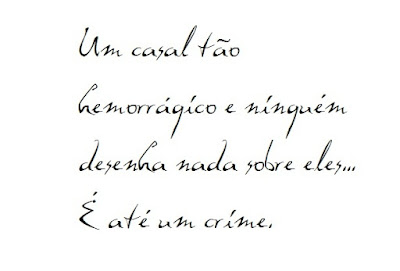 Um casal tão
hemorrágico e ninguém
desenha nada sobre eles...
É até um crime.